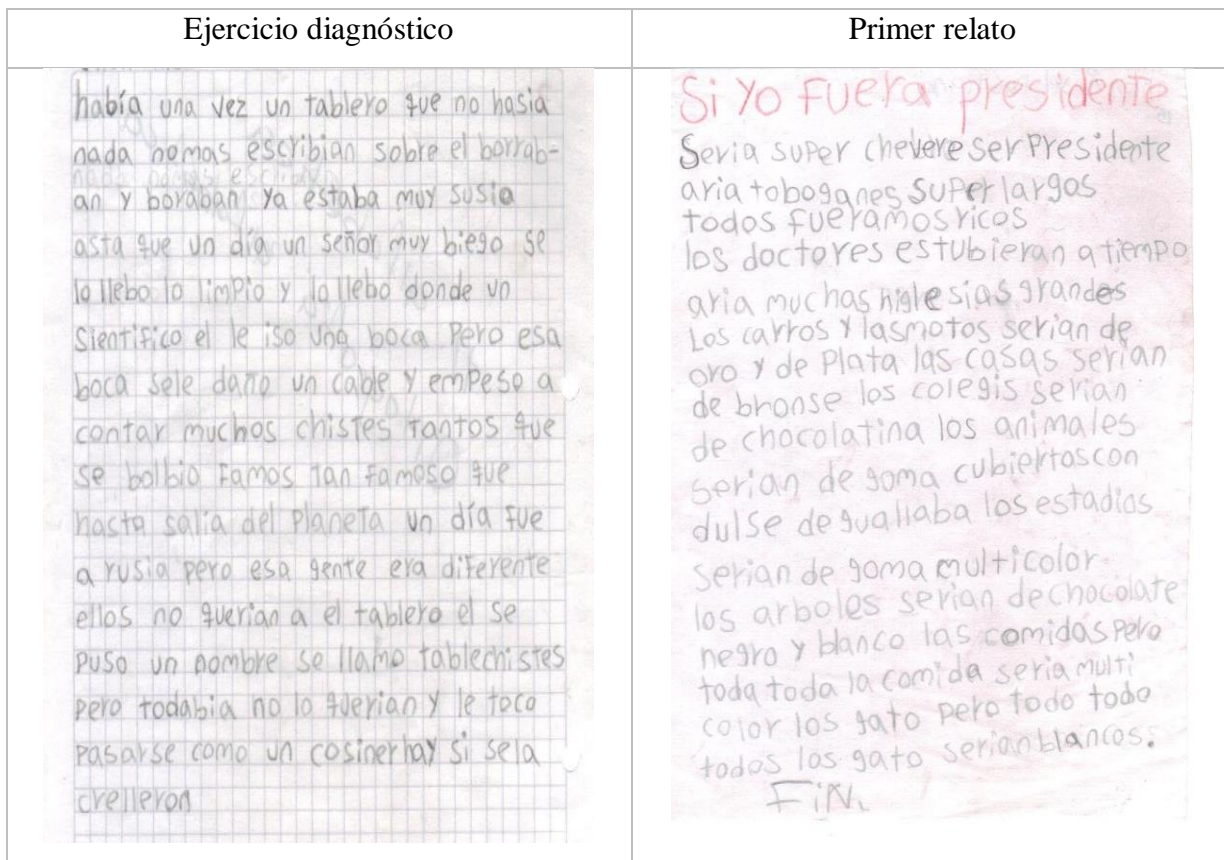 Ejercicio diagnóstico
había una vez un tablero que no hasia
nada nomas escribian sobre el borrab-
an y boraban ya estaba muy susia
asta que un día un señor muy biego se
lo llebo lo limpio y lo llebo donde un
sientifico el le iso una boca pero esa
boca sele daño un cable y empeso a
contar muchos chistes tantos que
se bolbio famos tan famoso que
hasta salia del planeta un día fue
a rusia pero esa gente era diferente
ellos no querian a el tablero el se
puso un nombre se llamo tablechistes
pero todabia no lo querian y le toco
pasarse como un cosinerhay si sela
crelleron
Primer relato
Si yo fuera presidente
Seria super chevere ser presidente
aria toboganes super largos
todos fueramos ricos
los doctores estubieran a tiempo
aria muchas higlesias grandes
los carros y lasmotos serian de
oro y de plata las casas serian
de bronse los colegis serian
de chocolatina los animales
serian de goma cubiertos con
dulse de guallaba los estadios
serian de goma multicolor
los arboles serian dechocolate
negro y blanco las comidas pero
toda toda la comida seria multi
color los gato pero todo todo
todos los gato serian blancos.
FiN.